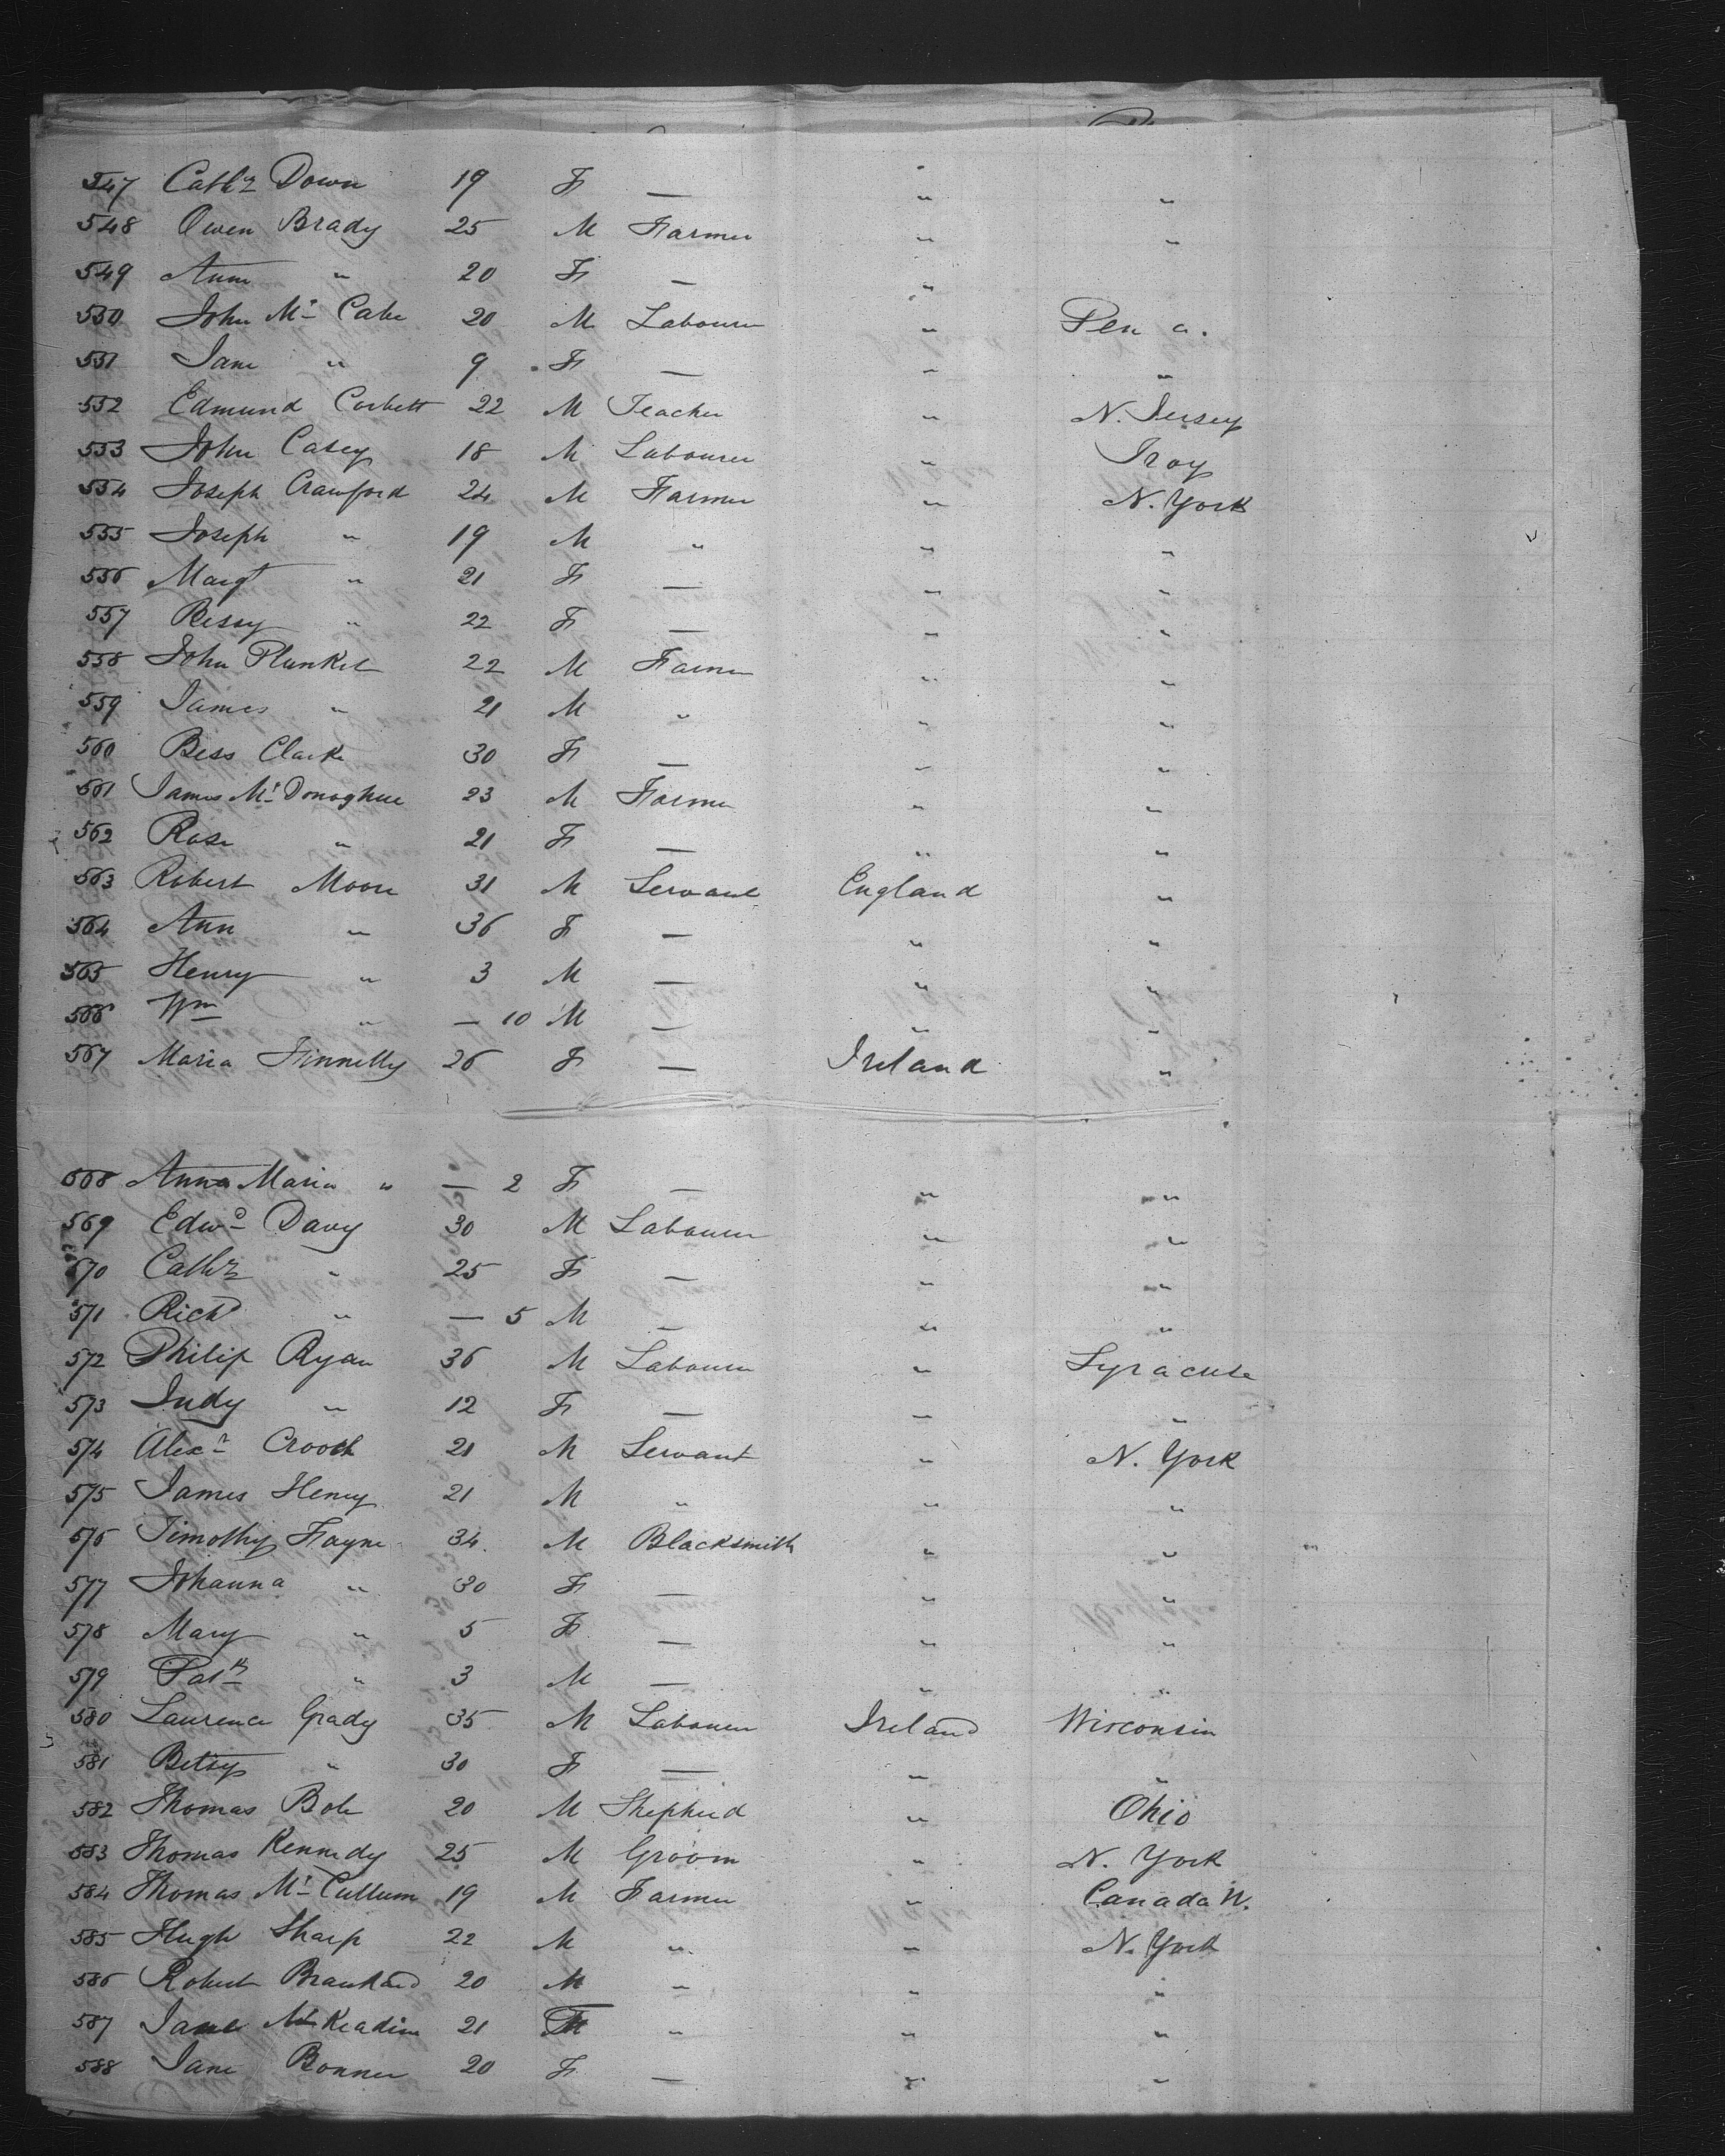 547 Cathn Down 19 F — " "
548 Owen Brady 25 M Farmer " "
549 Ann " 20 F — " "
550 John Mc Cabe 20 M Labourer " Pen a.
551 Jane " 9 F — " "
552 Edmund Corbett 22 M Teacher " N. Jersey
553 John Casey 18 M Labourer " Troy
554 Joseph Crawford 24 M Farmer " N. York
555 Joseph " 19 M " " "
556 Margt " 21 F — " "
557 Bessy " 22 F — " "
558 John Plunket 22 M Farmer " "
559 James " 21 M " " "
560 Bess Clark 30 F — " "
561 James Mc Donoghue 23 M Farmer " "
562 Rose " 21 F — " "
563 Robert Moore 31 M Servant England "
564 Ann " 36 F — " "
565 Henry " 3 M — " "
566 Wm " — 10 M — " "
567 Maria Finnelly 26 F — Ireland "
568 Anna Maria " — 2 F — " "
569 Edwd Davy 30 M Labourer " "
570 Cathn " 25 F — " "
571 Richd " — 5 M — " "
572 Philip Ryan 36 M Labourer " Syracuse
573 Judy " 12 F — " "
574 Alexr 21 M Servant " N. York
575 James Henry 21 M " " "
576 Timothy Fayne 34 M Blacksmith " "
577 Johanna " 30 F — " "
578 Mary " 5 F — " "
579 Patk " 3 M — " "
580 Laurence Grady 35 M Labourer Ireland Wisconsin
581 Betsy " 30 F — " "
582 Thomas 20 M Shepherd " Ohio
583 Thomas Kennedy 25 M Groom " N. York
584 Thomas Mc Cullum 19 M Farmer " Canada W.
585 Hugh Sharp 22 M " " N. York
586 Robert 20 M " " "
587 Jane 21 F " " "
588 Jane Bonner 20 F — " "